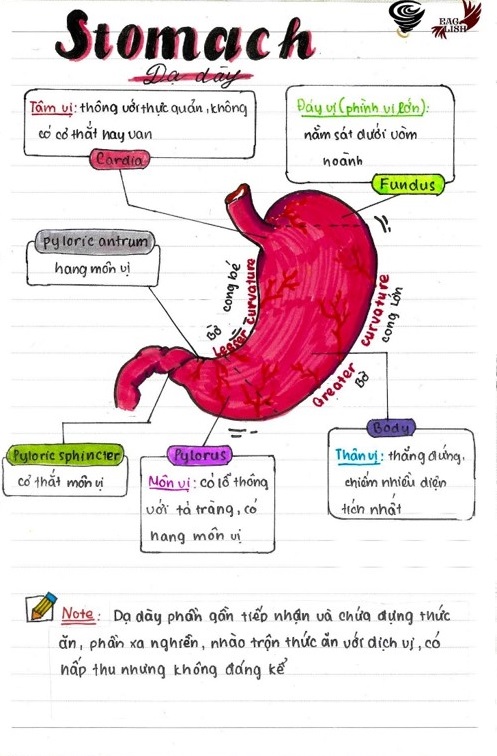 Stomach
Dạ dày
EAG
LISH
Tâm vị: thông với thực quản, không
có cơ thắt hay van
Cardia
Đáy vị (phình vị lớn):
nằm sát dưới vòm
hoành
Fundus
pyloric antrum
hang môn vị
Bờ cong bé
Lesser curvature
Greater curvature
Bờ cong lớn
Pyloric sphincter
cơ thắt môn vị
Pylorus
Môn vị: có lỗ thông
với tá tràng, có
hang môn vị
Body
Thân vị: thẳng đứng,
chiếm nhiều diện
tích nhất
Note: Dạ dày phần gần tiếp nhận và chứa đựng thức
ăn, phần xa nghiền, nhào trộn thức ăn với dịch vị, có
hấp thu nhưng không đáng kể